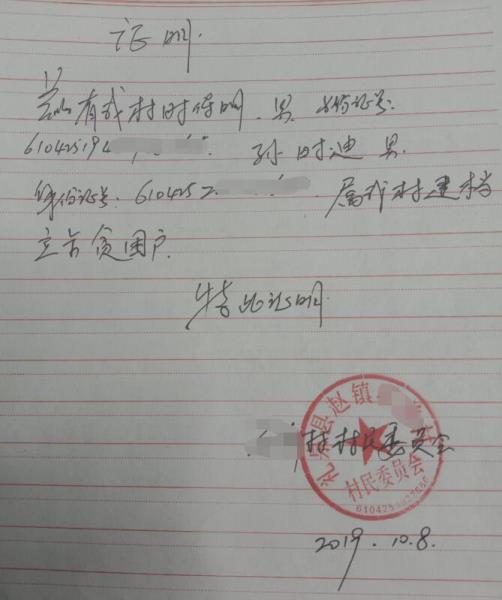 证明
兹有我村时保明、男、身份证号:
610425194
孙 时迪 男.
身份证号: 6104252
属我村建档
立卡贫困户.
特此证明
礼泉县赵镇
村村民委员会
村民委员会
2019.10.8.